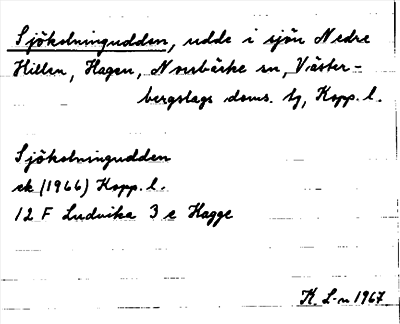 Sjökolningudden, udde i sjön Nedre
Hillen, Hagen, Norrbärke sn, Väster-
bergslags doms. tg, Kopp. l.
Sjökolningudden
ek (1966) Kopp. l.
12 F Ludvika 3 e Hagge
K. L-n 1967